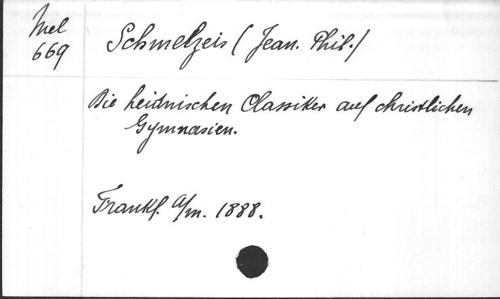 Mel
669
Schmelzeis (Jean. Phil.)
Die heidnischen Classiker auf christlichen
Gymnasien.
Frankf. a/m. 1888.